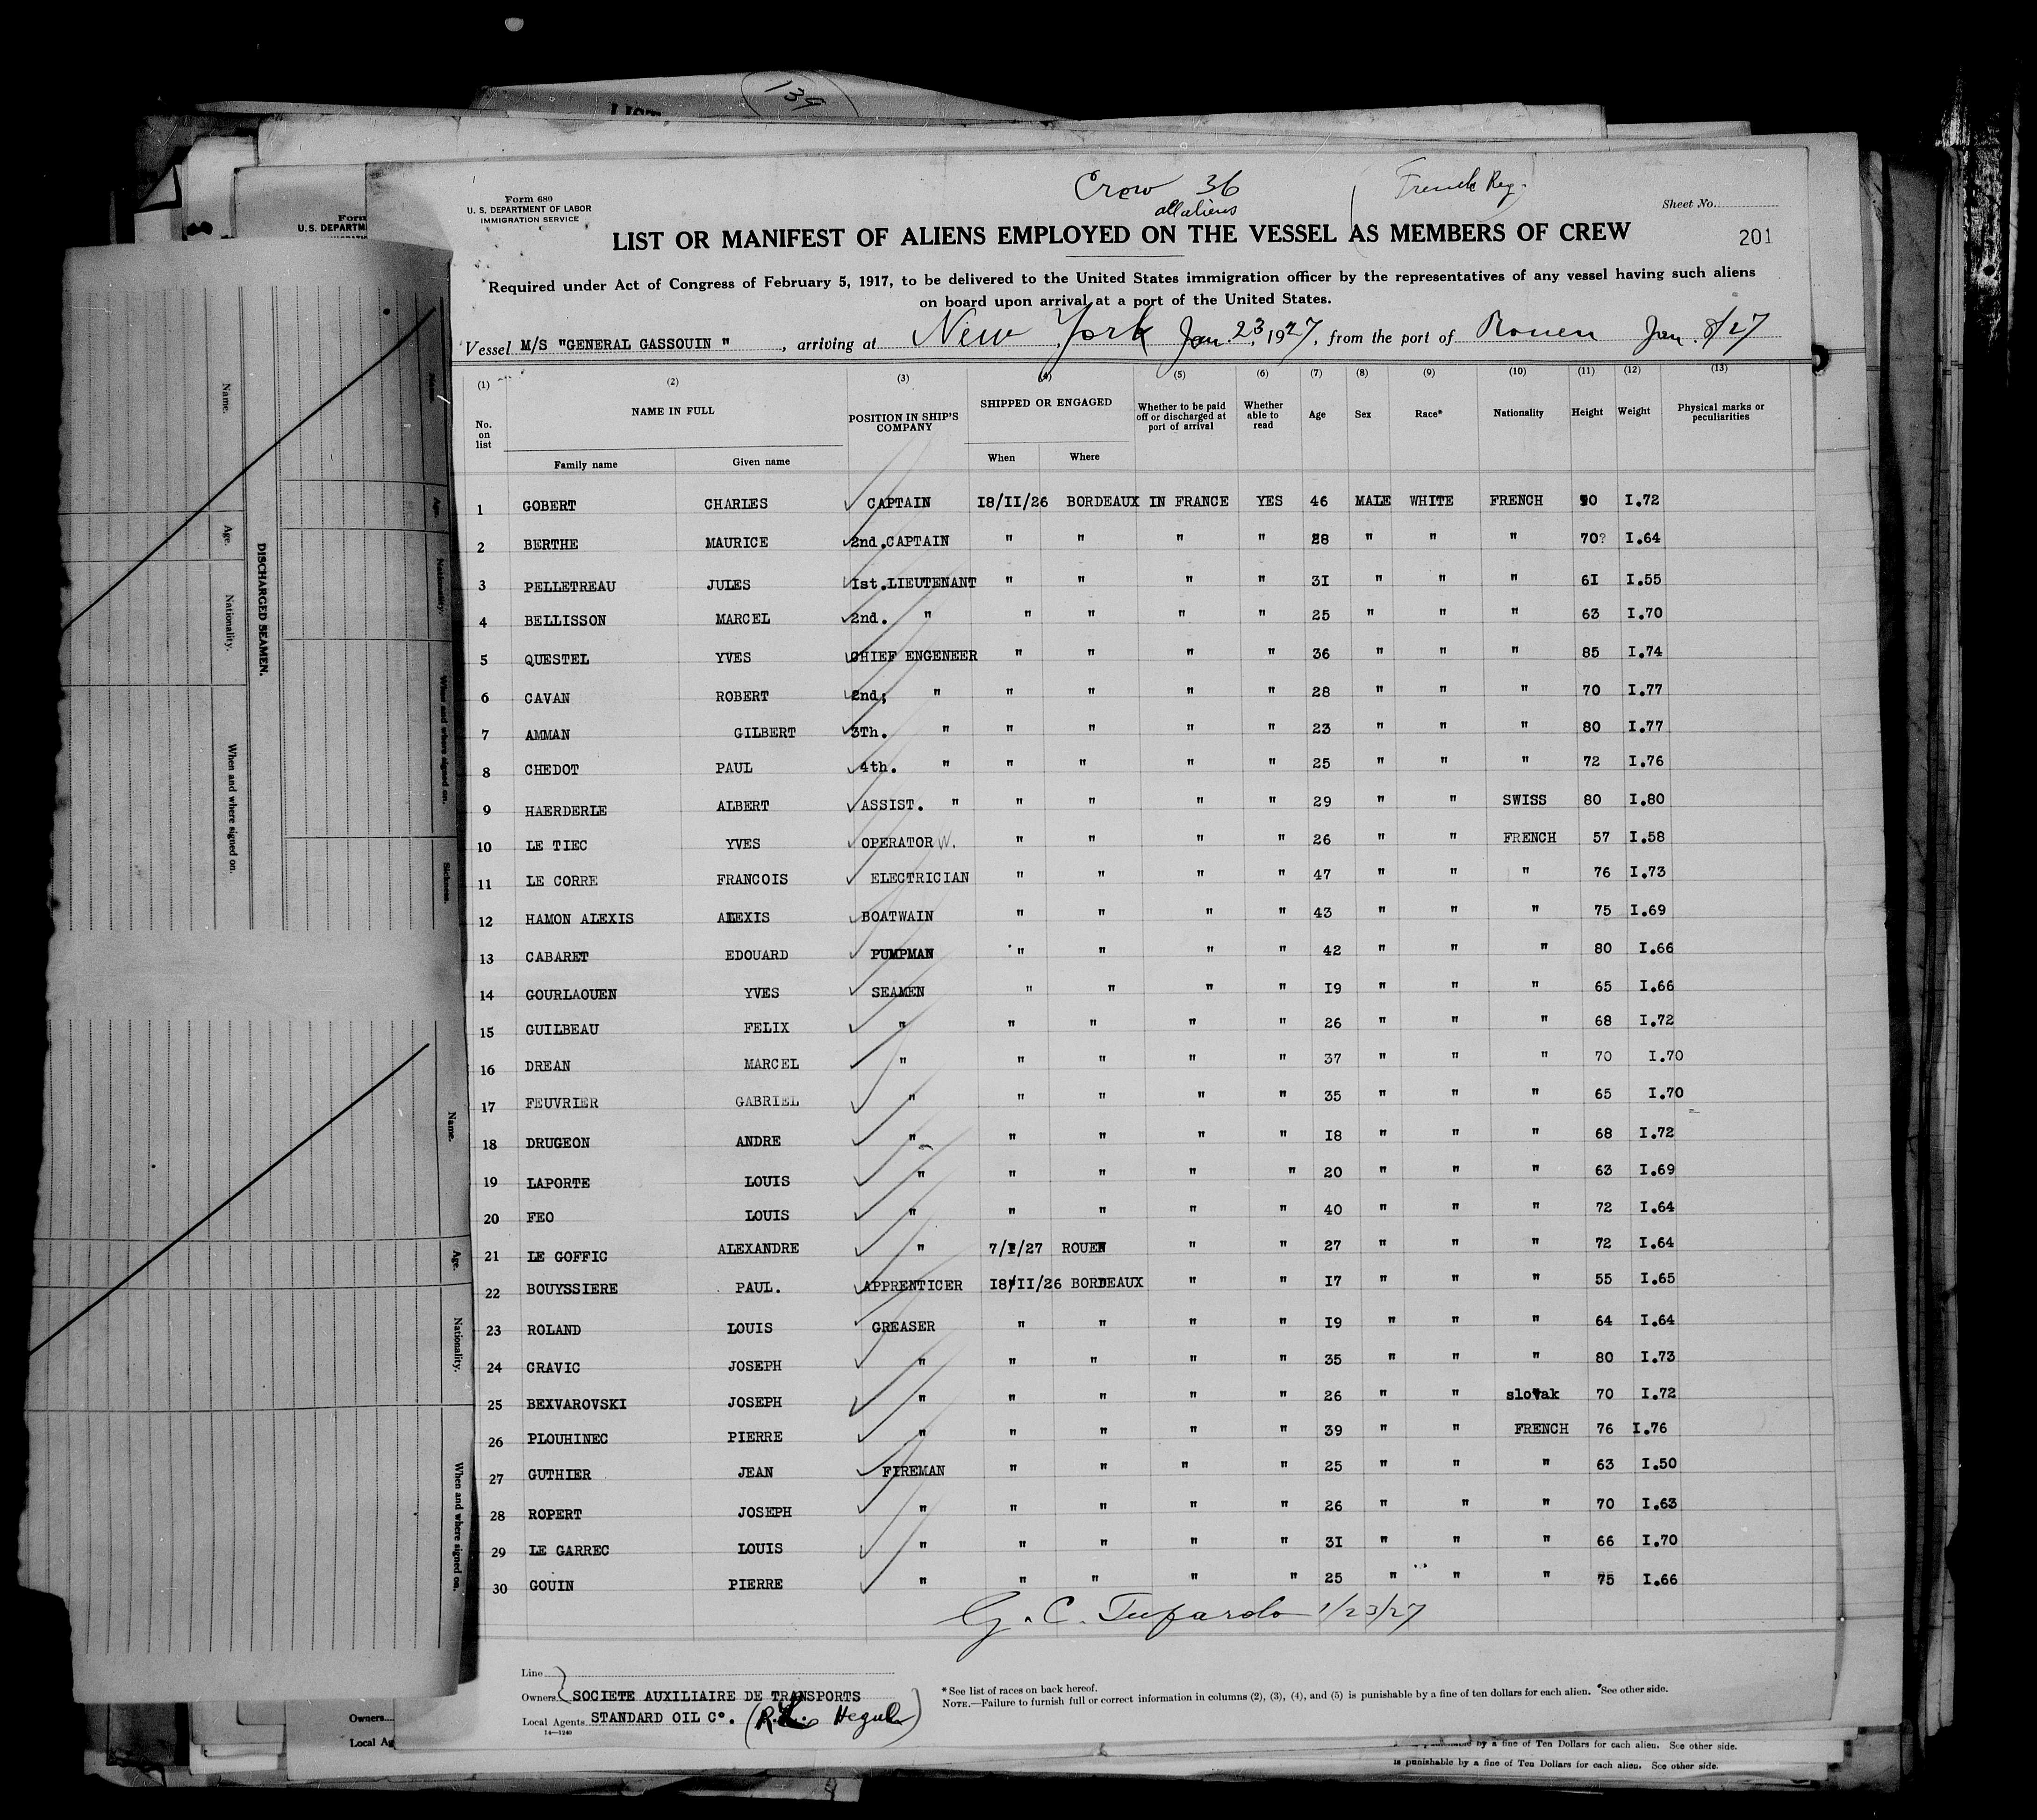 139
LIST
Form 680
U. S. DEPARTMENT OF LABOR
IMMIGRATION SERVICE
Form
U. S. DEPARTM
Crew 36
all aliens
French Reg.
Sheet No.
LIST OR MANIFEST OF ALIENS EMPLOYED ON THE VESSEL AS MEMBERS OF CREW
201
Required under Act of Congress of February 5, 1917, to be delivered to the United States immigration officer by the representatives of any vessel having such aliens
on board upon arrival at a port of the United States.
Vessel M/S "GENERAL GASSOUIN ", arriving at New York Jan. 23, 1927, from the port of Rouen Jan. 8/27
(1) (2) (3) (4) (5) (6) (7) (8) (9) (10) (11) (12) (13)
No. on list NAME IN FULL POSITION IN SHIP'S COMPANY SHIPPED OR ENGAGED Whether to be paid off or discharged at port of arrival Whether able to read Age Sex Race* Nationality Height Weight Physical marks or peculiarities
Family name Given name When Where
1 GOBERT CHARLES CAPTAIN 18/11/26 BORDEAUX IN FRANCE YES 46 MALE WHITE FRENCH 90 I.72
2 BERTHE MAURICE 2nd.CAPTAIN " " " " 28 " " " 70? I.64
3 PELLETREAU JULES 1st.LIEUTENANT " " " " 31 " " " 61 I.55
4 BELLISSON MARCEL 2nd. " " " " " 25 " " " 63 I.70
5 QUESTEL YVES CHIEF ENGENEER " " " " 36 " " " 85 I.74
6 CAVAN ROBERT 2nd; " " " " " 28 " " " 70 I.77
7 AMMAN GILBERT 3Th. " " " " " 23 " " " 80 I.77
8 CHEDOT PAUL 4th. " " " " " 25 " " " 72 I.76
9 HAERDERLE ALBERT ASSIST. " " " " " 29 " " SWISS 80 I.80
10 LE TIEC YVES OPERATOR W. " " " " 26 " " FRENCH 57 I.58
11 LE CORRE FRANCOIS ELECTRICIAN " " " " 47 " " " 76 I.73
12 HAMON ALEXIS ALEXIS BOATWAIN " " " " 43 " " " 75 I.69
13 CABARET EDOUARD PUMPMAN " " " " 42 " " " 80 I.66
14 GOURLAOUEN YVES SEAMEN " " " " 19 " " " 65 I.66
15 GUILBEAU FELIX " " " " " 26 " " " 68 I.72
16 DREAN MARCEL " " " " " 37 " " " 70 I.70
17 FEUVRIER GABRIEL " " " " " 35 " " " 65 I.70
18 DRUGEON ANDRE " " " " " 18 " " " 68 I.72
19 LAPORTE LOUIS " " " " " 20 " " " 63 I.69
20 FEO LOUIS " " " " " 40 " " " 72 I.64
21 LE GOFFIC ALEXANDRE " 7/1/27 ROUEN " " 27 " " " 72 I.64
22 BOUYSSIERE PAUL. APPRENTICER 18/11/26 BORDEAUX " " 17 " " " 55 I.65
23 ROLAND LOUIS GREASER " " " " 19 " " " 64 I.64
24 CRAVIC JOSEPH " " " " " 35 " " " 80 I.73
25 BEXVAROVSKI JOSEPH " " " " " 26 " " slovak 70 I.72
26 PLOUHINEC PIERRE " " " " " 39 " " FRENCH 76 I.76
27 GUTHIER JEAN FIREMAN " " " " 25 " " " 63 I.50
28 ROPERT JOSEPH " " " " " 26 " " " 70 I.63
29 LE GARREC LOUIS " " " " " 31 " " " 66 I.70
30 GOUIN PIERRE " " " " " 25 " " " 75 I.66
G. C. Tufarolo 1/23/27
Line
Owners SOCIETE AUXILIAIRE DE TRANSPORTS
Local Agents STANDARD OIL Co.
14—1240
* See list of races on back hereof.
NOTE.—Failure to furnish full or correct information in columns (2), (3), (4), and (5) is punishable by a fine of ten dollars for each alien. See other side.
Owners
Local Ag
by a fine of Ten Dollars for each alien. See other side.
is punishable by a fine of Ten Dollars for each alien. See other side.
DISCHARGED SEAMEN.
Name.
Age.
Nationality.
When and where signed on.
Name.
Age.
Nationality.
When and where signed on.
Sickness.
Name.
Age.
Nationality.
When and where signed on.